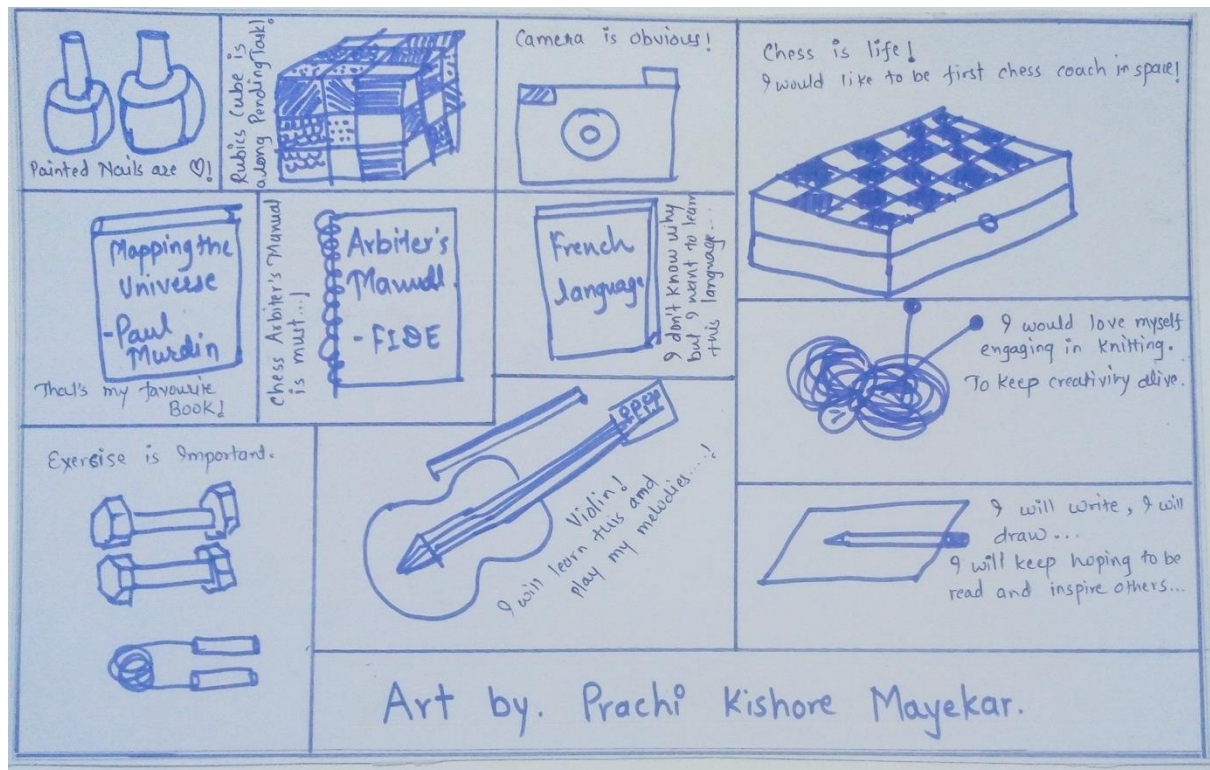 Painted Nails are ♡!
Rubics Cube is
along Pending Task!
Camera is obvious!
Chess is life!
I would like to be first chess coach in space!
Mapping the
Universe
-Paul
Murdin
That's my favourite
Book!
Chess Arbiter's Manual
is must...!
Arbiter's
Manual
- FIDE
French
language
I don't know why
but I want to learn
this language...
I would love myself
engaging in knitting.
To keep creativity alive.
Exercise is Important.
Violin!
I will learn this and
play my melodies.....!
I will write, I will
draw...
I will keep hoping to be
read and inspire others...
Art by. Prachi Kishore Mayekar.